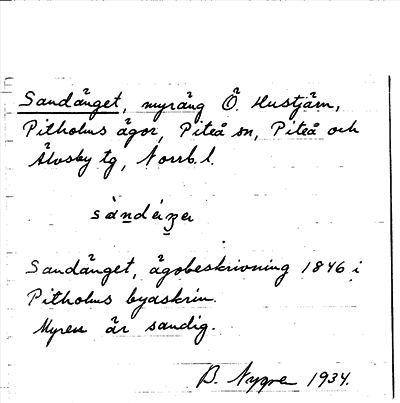 Sandänget, myräng Ö. Hustjärn,
Pitholms ägor, Piteå sn, Piteå och
Älvsby tg, Norrb. l.
Sandänget, ägobeskrivning 1846 i
Pitholms byaskrin.
Myren är sandig.
B. Nygre 1934.